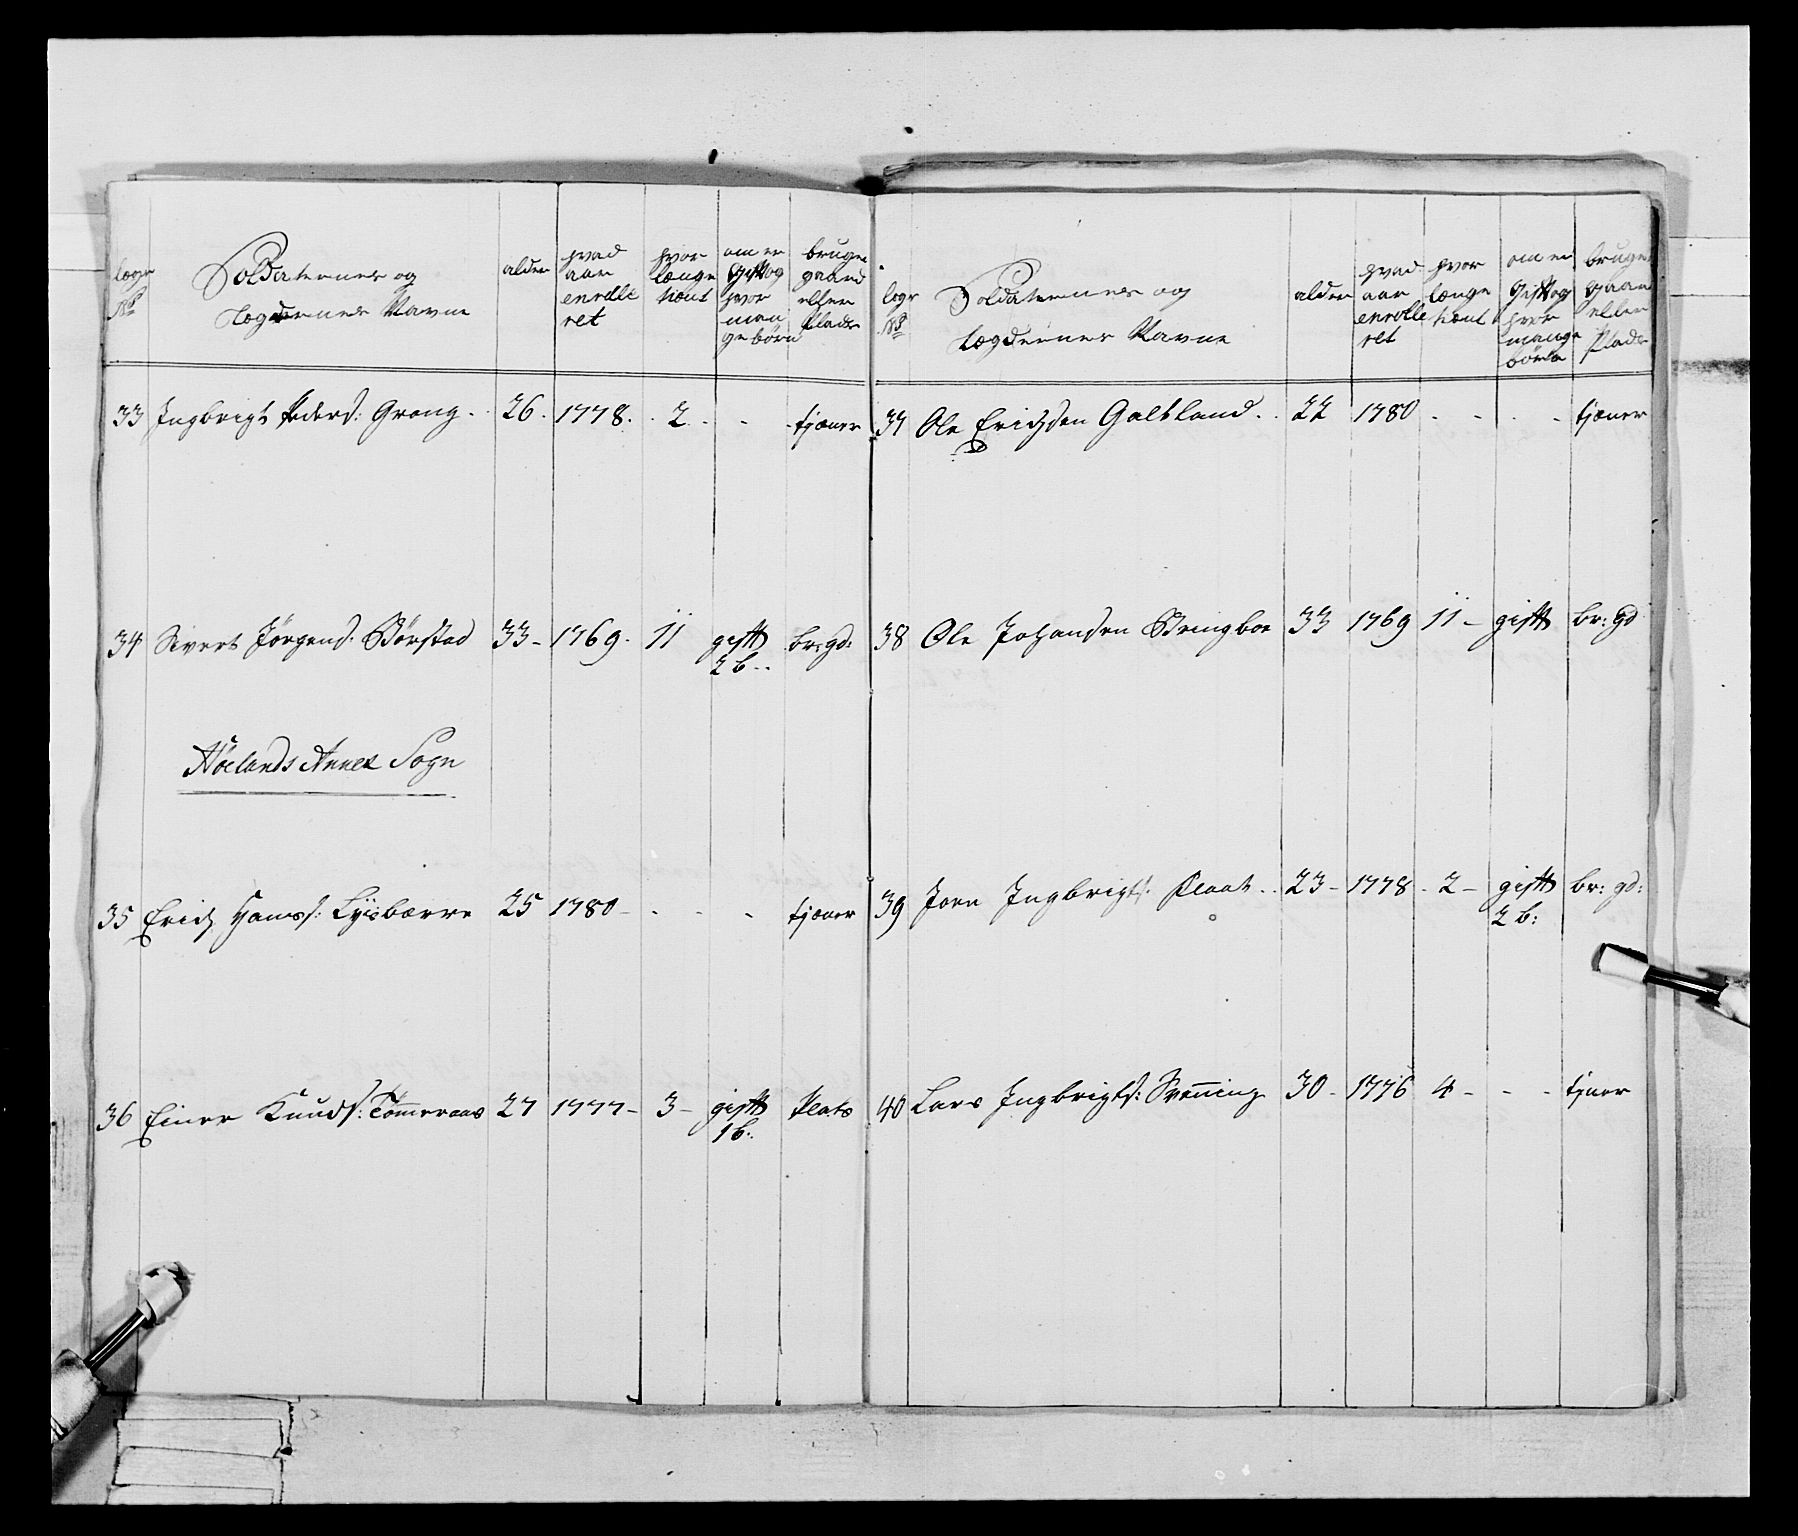 lægs No Soldaternes og Lægdernes Navne alder hvad aar enrolle ret hvor længe tient om er Gift og hvor man ge børn bruger gaard eller Plads
33 Ingbrigt Peders: Grong. 26. 1778. 2. - - tjæner
34 Sivert Jørgens: Børstad 33- 1769. 11 gift br: gd:
2 b..
Høelands Annex Sogn
35 Erich Hanss: Lysbærre 25 1780- - - - tjæner
36 Einer Knuds: Tømmeraas 27 1777- 3- gift Plats
1 b:
lægs No Soldaternes og Lægdernes Navne alder hvad aar enrolle ret hvor længe tient om er Gift og hvor mange børn bruger gaard eller Plads
37 Ole Erichsen Galtland. 22 1780 - - - - tjæner
38 Ole Johansen Bringboe 33 1769 11 - gift br: gd
39 Joen Ingbrigts: Plaat.. 23- 1778. 2- gift br: gd:
2 b:
40 Lars Ingbrigts: Svenning 30- 1776 4- - - tjner